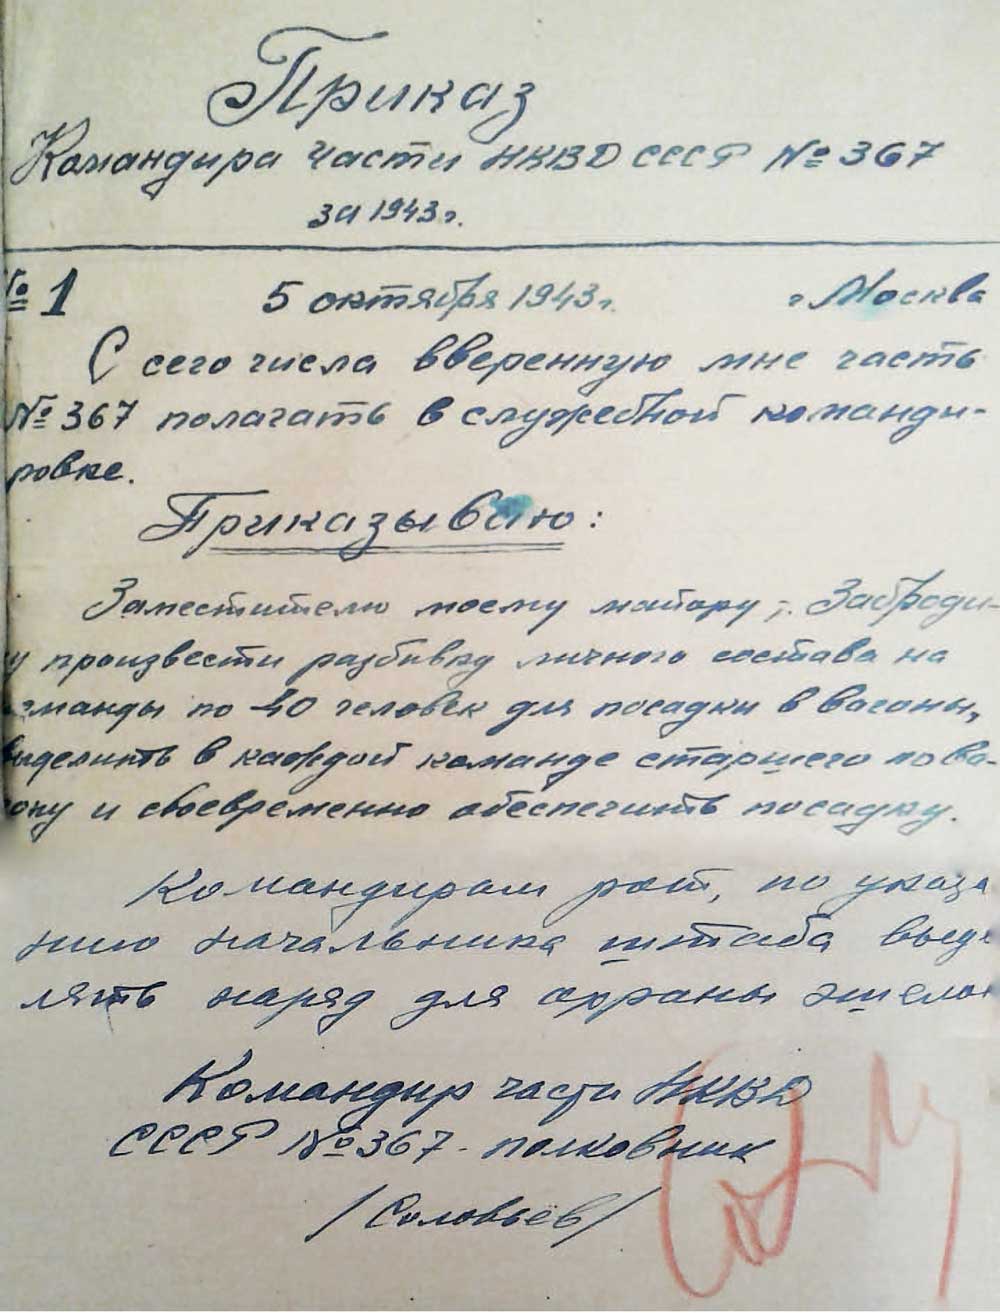 Приказ
Командира части НКВД СССР № 367
за 1943 г.
№ 1 5 октября 1943 г. г. Москва
С сего числа вверенную мне часть
№ 367 полагать в служебной команди-
ровке.
Приказываю:
Заместителю моему майору т. Заброди-
ну произвести разбивку личного состава на
команды по 40 человек для посадки в вагоны,
выделить в каждой команде старшего по ва-
гону и своевременно обеспечить посадку.
Командирам рот, по указа
нию начальника штаба выде
лять наряд для охраны эшело
Командир части НКВД
СССР № 367 - полковник
/Соловьёв/